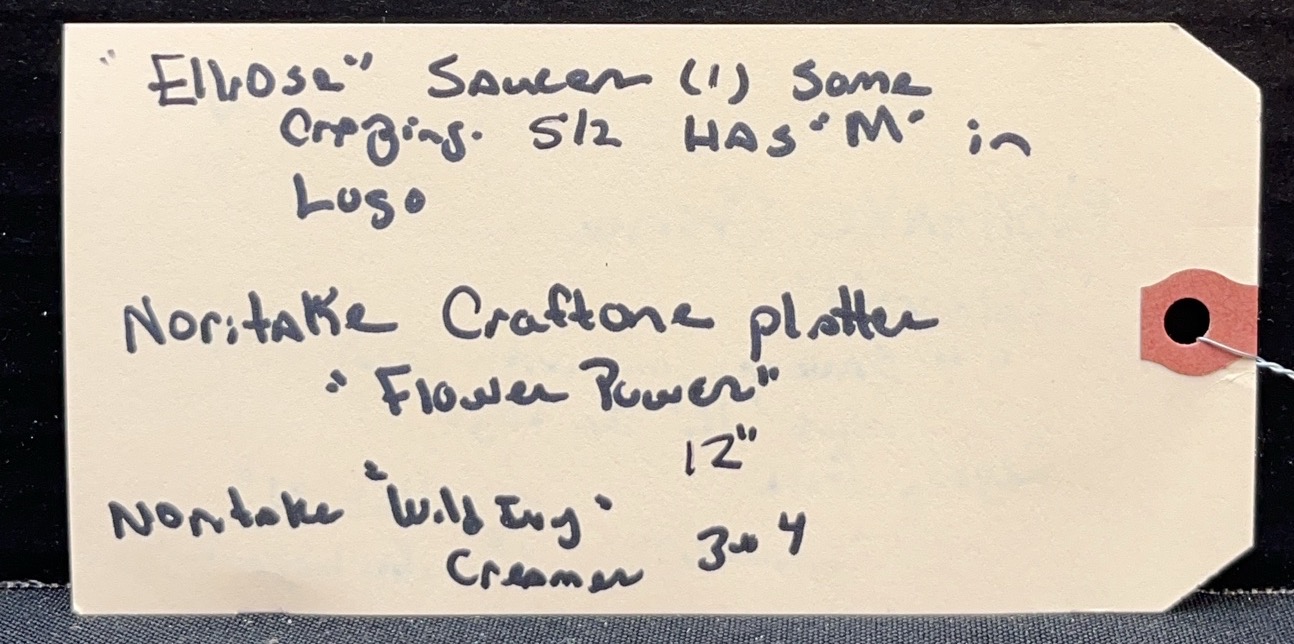 "Elrose" Saucer (1) Some
Crazing. 5 1/2 HAS "M" in
Logo
Noritake Craftone platter
"Flower Power"
12"
Noritake "Wild Ivy"
Creamer 3" 4